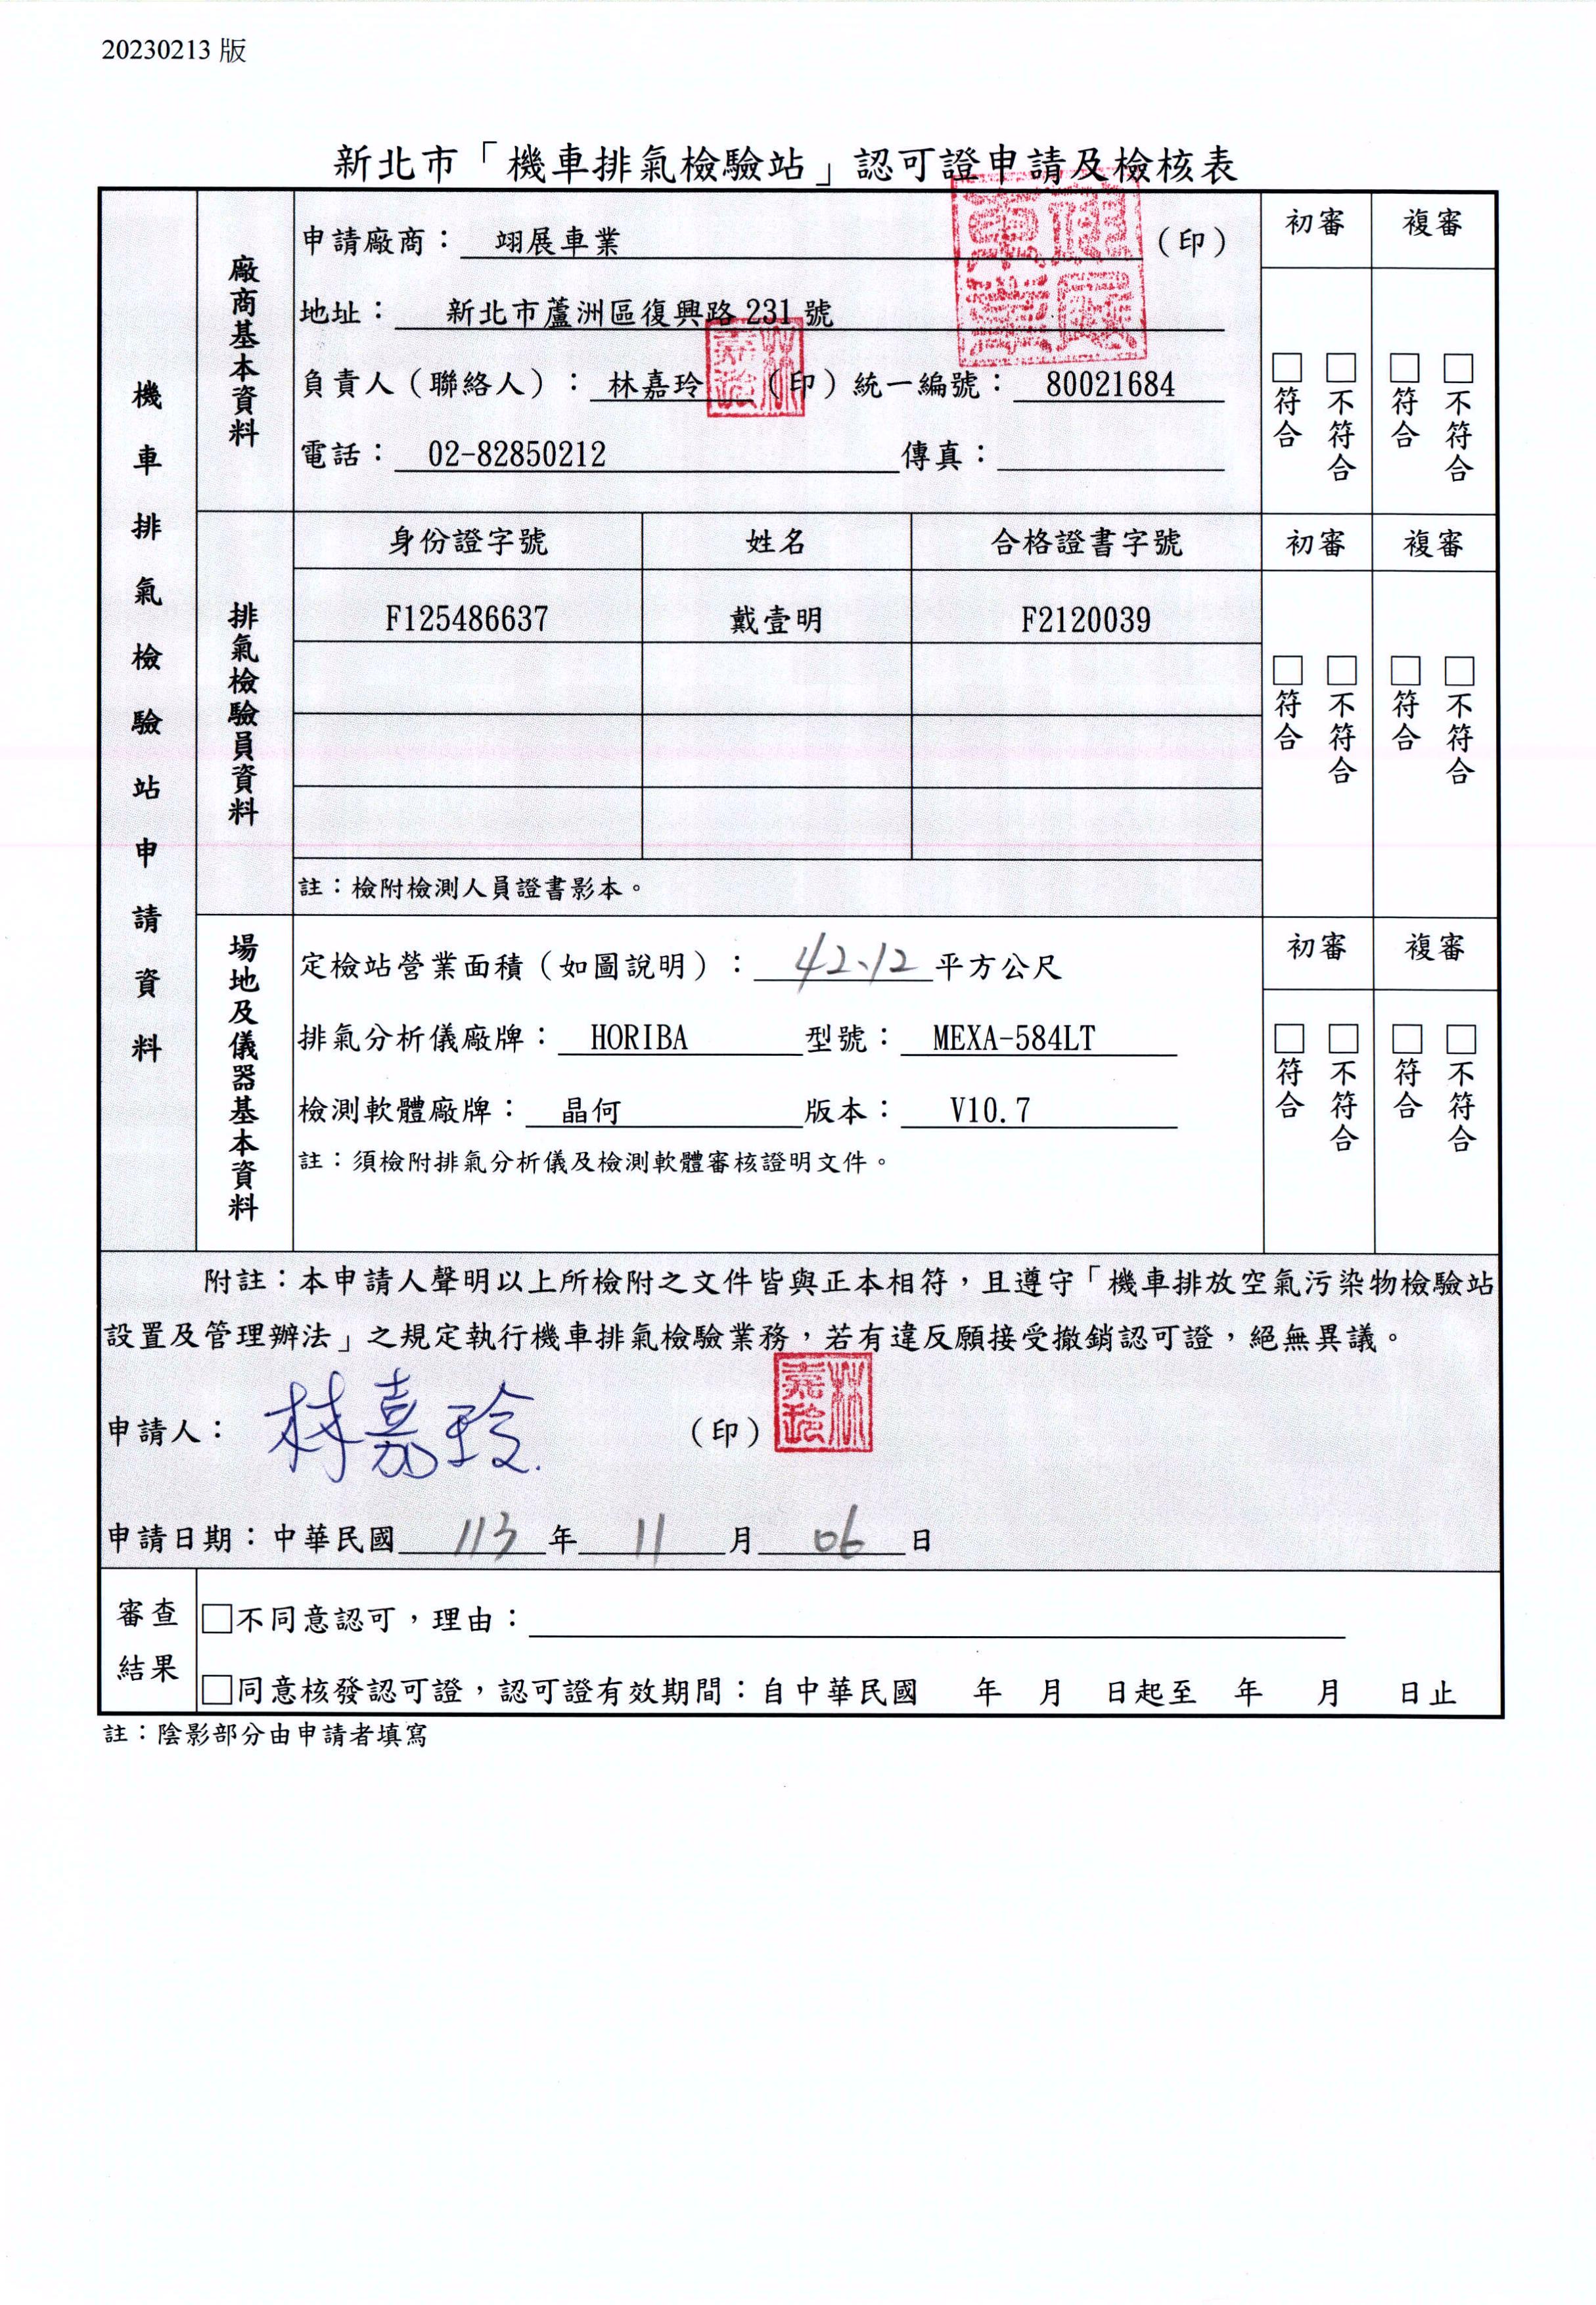 20230213 版
新北市「機車排氣檢驗站」認可證申請及檢核表
機車排氣檢驗站申請資料
廠商基本資料
申請廠商： 翊展車業 （印）
地址： 新北市蘆洲區復興路 231 號
負責人（聯絡人）： 林嘉玲 （印）統一編號： 80021684
電話： 02-82850212 傳真：
初審 複審
□符合 □不符合 □符合 □不符合
排氣檢驗員資料
身份證字號 姓名 合格證書字號
F125486637 戴壹明 F2120039
註：檢附檢測人員證書影本。
初審 複審
□符合 □不符合 □符合 □不符合
場地及儀器基本資料
定檢站營業面積（如圖說明）： 42.12 平方公尺
排氣分析儀廠牌： HORIBA 型號： MEXA-584LT
檢測軟體廠牌： 晶何 版本： V10.7
註：須檢附排氣分析儀及檢測軟體審核證明文件。
初審 複審
□符合 □不符合 □符合 □不符合
附註：本申請人聲明以上所檢附之文件皆與正本相符，且遵守「機車排放空氣污染物檢驗站
設置及管理辦法」之規定執行機車排氣檢驗業務，若有違反願接受撤銷認可證，絕無異議。
申請人： 林嘉玲 （印） 林嘉玲
申請日期：中華民國 113 年 11 月 06 日
審查結果
□不同意認可，理由：
□同意核發認可證，認可證有效期間：自中華民國 年 月 日起至 年 月 日止
註：陰影部分由申請者填寫